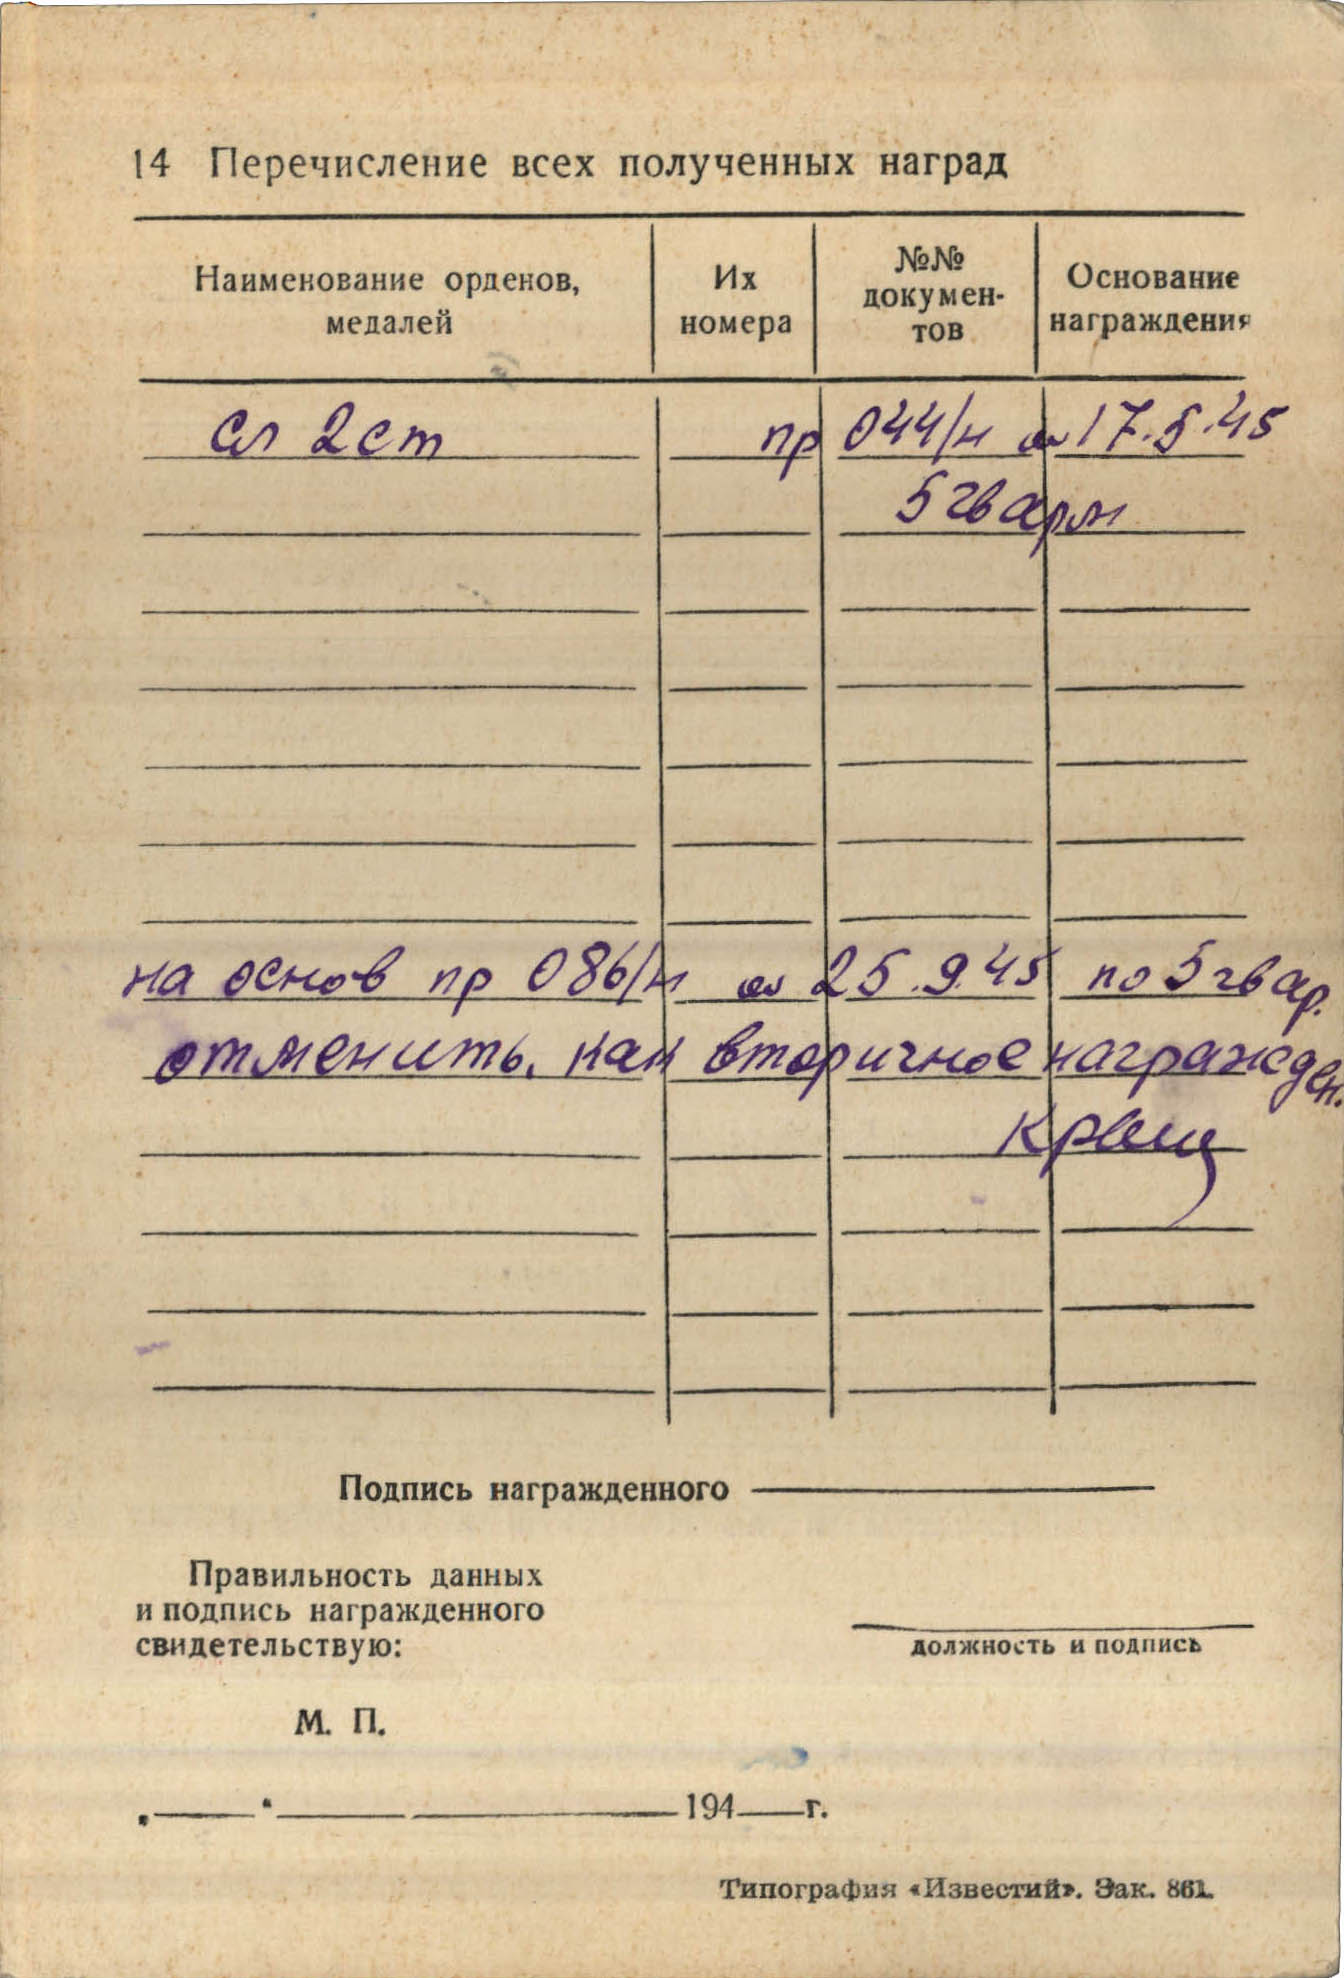 14 Перечисление всех полученных наград
Наименование орденов,
медалей
Их
номера
№№
докумен-
тов
Основание
награждения
Сл 2 ст пр 044/н от 17.5.45
5 гв арм
на основ пр 086/н от 25.9.45 по 5 гв ар.
отменить, как вторичное награжден.
Подпись награжденного
Правильность данных
и подпись награжденного
свидетельствую:
должность и подпись
М. П.
„ “ 194 г.
Типография «Известий». Зак. 861.